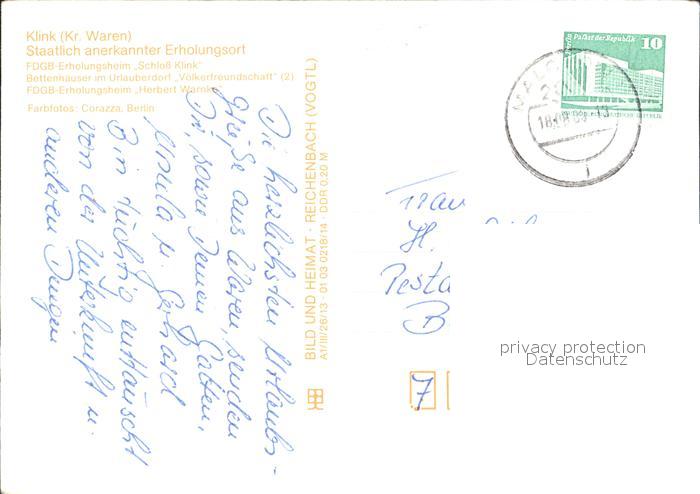 Klink (Kr. Waren)
Staatlich anerkannter Erholungsort
FDGB-Erholungsheim „Schloß Klink“
Bettenhäuser im Urlauberdorf „Völkerfreundschaft“ (2)
FDGB-Erholungsheim „Herbert Warnke“
Farbfotos: Corazza, Berlin
Die herzlichsten Urlaubs-
grüße aus Waren, senden
Dir, sowie Deinem Gatten,
Ursula u. Gerhard
Bin tüchtig enttäuscht
von der Unterkunft u.
anderen Dingen
BILD UND HEIMAT · REICHENBACH (VOGTL)
A1/III/26/13 · 01 03 0218/14 · DDR 0,20 M
Palast der Republik 10
MALC
18
Frau
H.
Pesta
B
7
privacy protection
Datenschutz